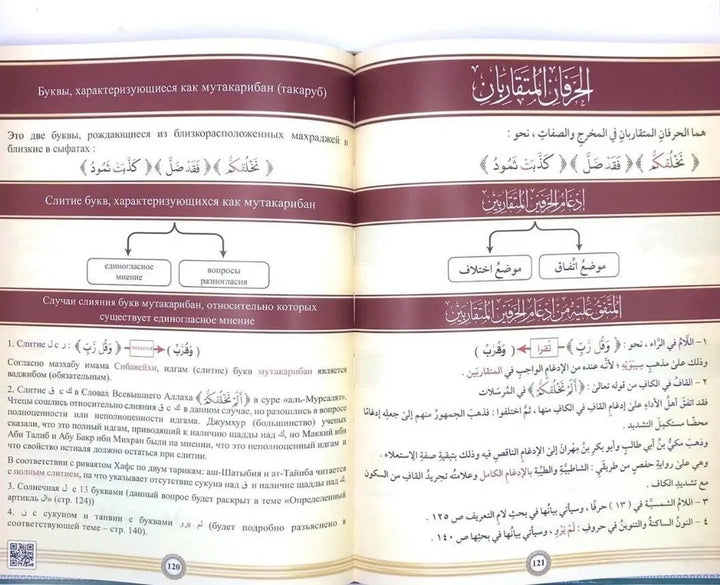 Буквы, характеризующиеся как мутакарибан (такаруб)
Это две буквы, рождающиеся из близкорасположенных махраджей и
близкие в сыфатах :
﴿ نَخْلُقكُّم ﴾ ﴿ فَقَدْ ضَلَّ ﴾ ﴿ كَذَّبَتْ ثَمُودُ ﴾
Слитие букв, характеризующихся как мутакарибан
единогласное
мнение
вопросы
разногласия
Случаи слияния букв мутакарибан, относительно которых
существует единогласное мнение
1. Слитие ل с ر : ﴿ وَقُل رَّبِّ ﴾ читается ( وَقُرَّبِّ )
Согласно мазхабу имама Сибавейхи, идгам (слитие) букв мутакарибан является
ваджибом (обязательным).
2. Слитие ق с ك в Словах Всевышнего Аллаха ﴿ أَلَمْ نَخْلُقكُّم ﴾ в суре «аль-Мурсалят».
Чтецы сошлись относительно слияния ق с ك в данном случае, но разошлись в вопросе
полноценности или неполноценности идгама. Джумхур (большинство) ученых
сказали, что это полный идгам, приводящий к наличию шадды над ك, но Маккий ибн
Аби Талиб и Абу Бакр ибн Михран были на мнении, что это неполноценный идгам и
что свойство истиаля должно остаться при слитии.
В соответствии с риваятом Хафс по двум тарикам: аш-Шатыбия и ат-Тайиба читается
с полным слитием, на что указывает отсутствие сукуна над ق и наличие шадды над ك.
3. Солнечная ل с 13 буквами (данный вопрос будет раскрыт в теме «Определенный
артикль ال» (стр. 124))
4. ن с сукуном и танвин с буквами لم يرو (будет подробно разъяснено в
соответствующей теме – стр. 140).
120
الحَرفَانِ المُتَقَارِبَانِ
هما الحرفانِ المتقاربانِ في المخرجِ والصفاتِ ، نحو :
﴿ نَخْلُقكُّم ﴾ ﴿ فَقَدْ ضَلَّ ﴾ ﴿ كَذَّبَتْ ثَمُودُ ﴾
إدغَامُ الحَرفَينِ المُتَقَارِبَينِ
موضعُ اتِّفاق
موضعُ اختلاف
المُتَّفَقُ عَلَيهِ مِنْ إدغَامِ الحَرفَينِ المُتَقَارِبَينِ
١ - اللَّامُ في الرَّاء ، نحو : ﴿ وَقُل رَّبِّ ﴾ تُقرأ ( وَقُرَّبِّ )
وذلك على مذهبِ سيبَوَيهِ ؛ لأنَّه عنده من الإدغامِ الواجبِ في المتقاربَينِ .
٢ - القافُ في الكافِ من قوله تعالىٰ : ﴿ أَلَمْ نَخْلُقكُّم ﴾ في المُرسَلات
فقد اتفق أهلُ الأداءِ على إدغامِ القافِ في الكافِ منها , ثم اختلفوا : فذهبَ الجمهورُ منهم إلى جعلِه إدغامًا
محضًا مستكملَ التشديد .
وذهبَ مكيُّ بنُ أبي طالبٍ وأبو بكرِ بنُ مِهرانَ إلى الإدغامِ الناقصِ فيه وذلك بتبقيةِ صفةِ الاستعلاء .
وهي علىٰ روايةِ حفصٍ من طريقَي : الشاطبيَّةِ والطيِّبةِ بالإدغامِ الكاملِ وعلامتُه تجريدُ القافِ من السكون
مع تشديدِ الكاف .
٣ - اللامُ الشمسيَّة في (١٣) حرفًا ، وسيأتي بيانُها في بحثِ لامِ التعريف ص ١٢٥ .
٤ - النونُ الساكنةُ والتنوينُ في حروف : لَمْ يَرْوِ ، وسيأتي بيانُها في بحثِها ص ١٤٠ .
121